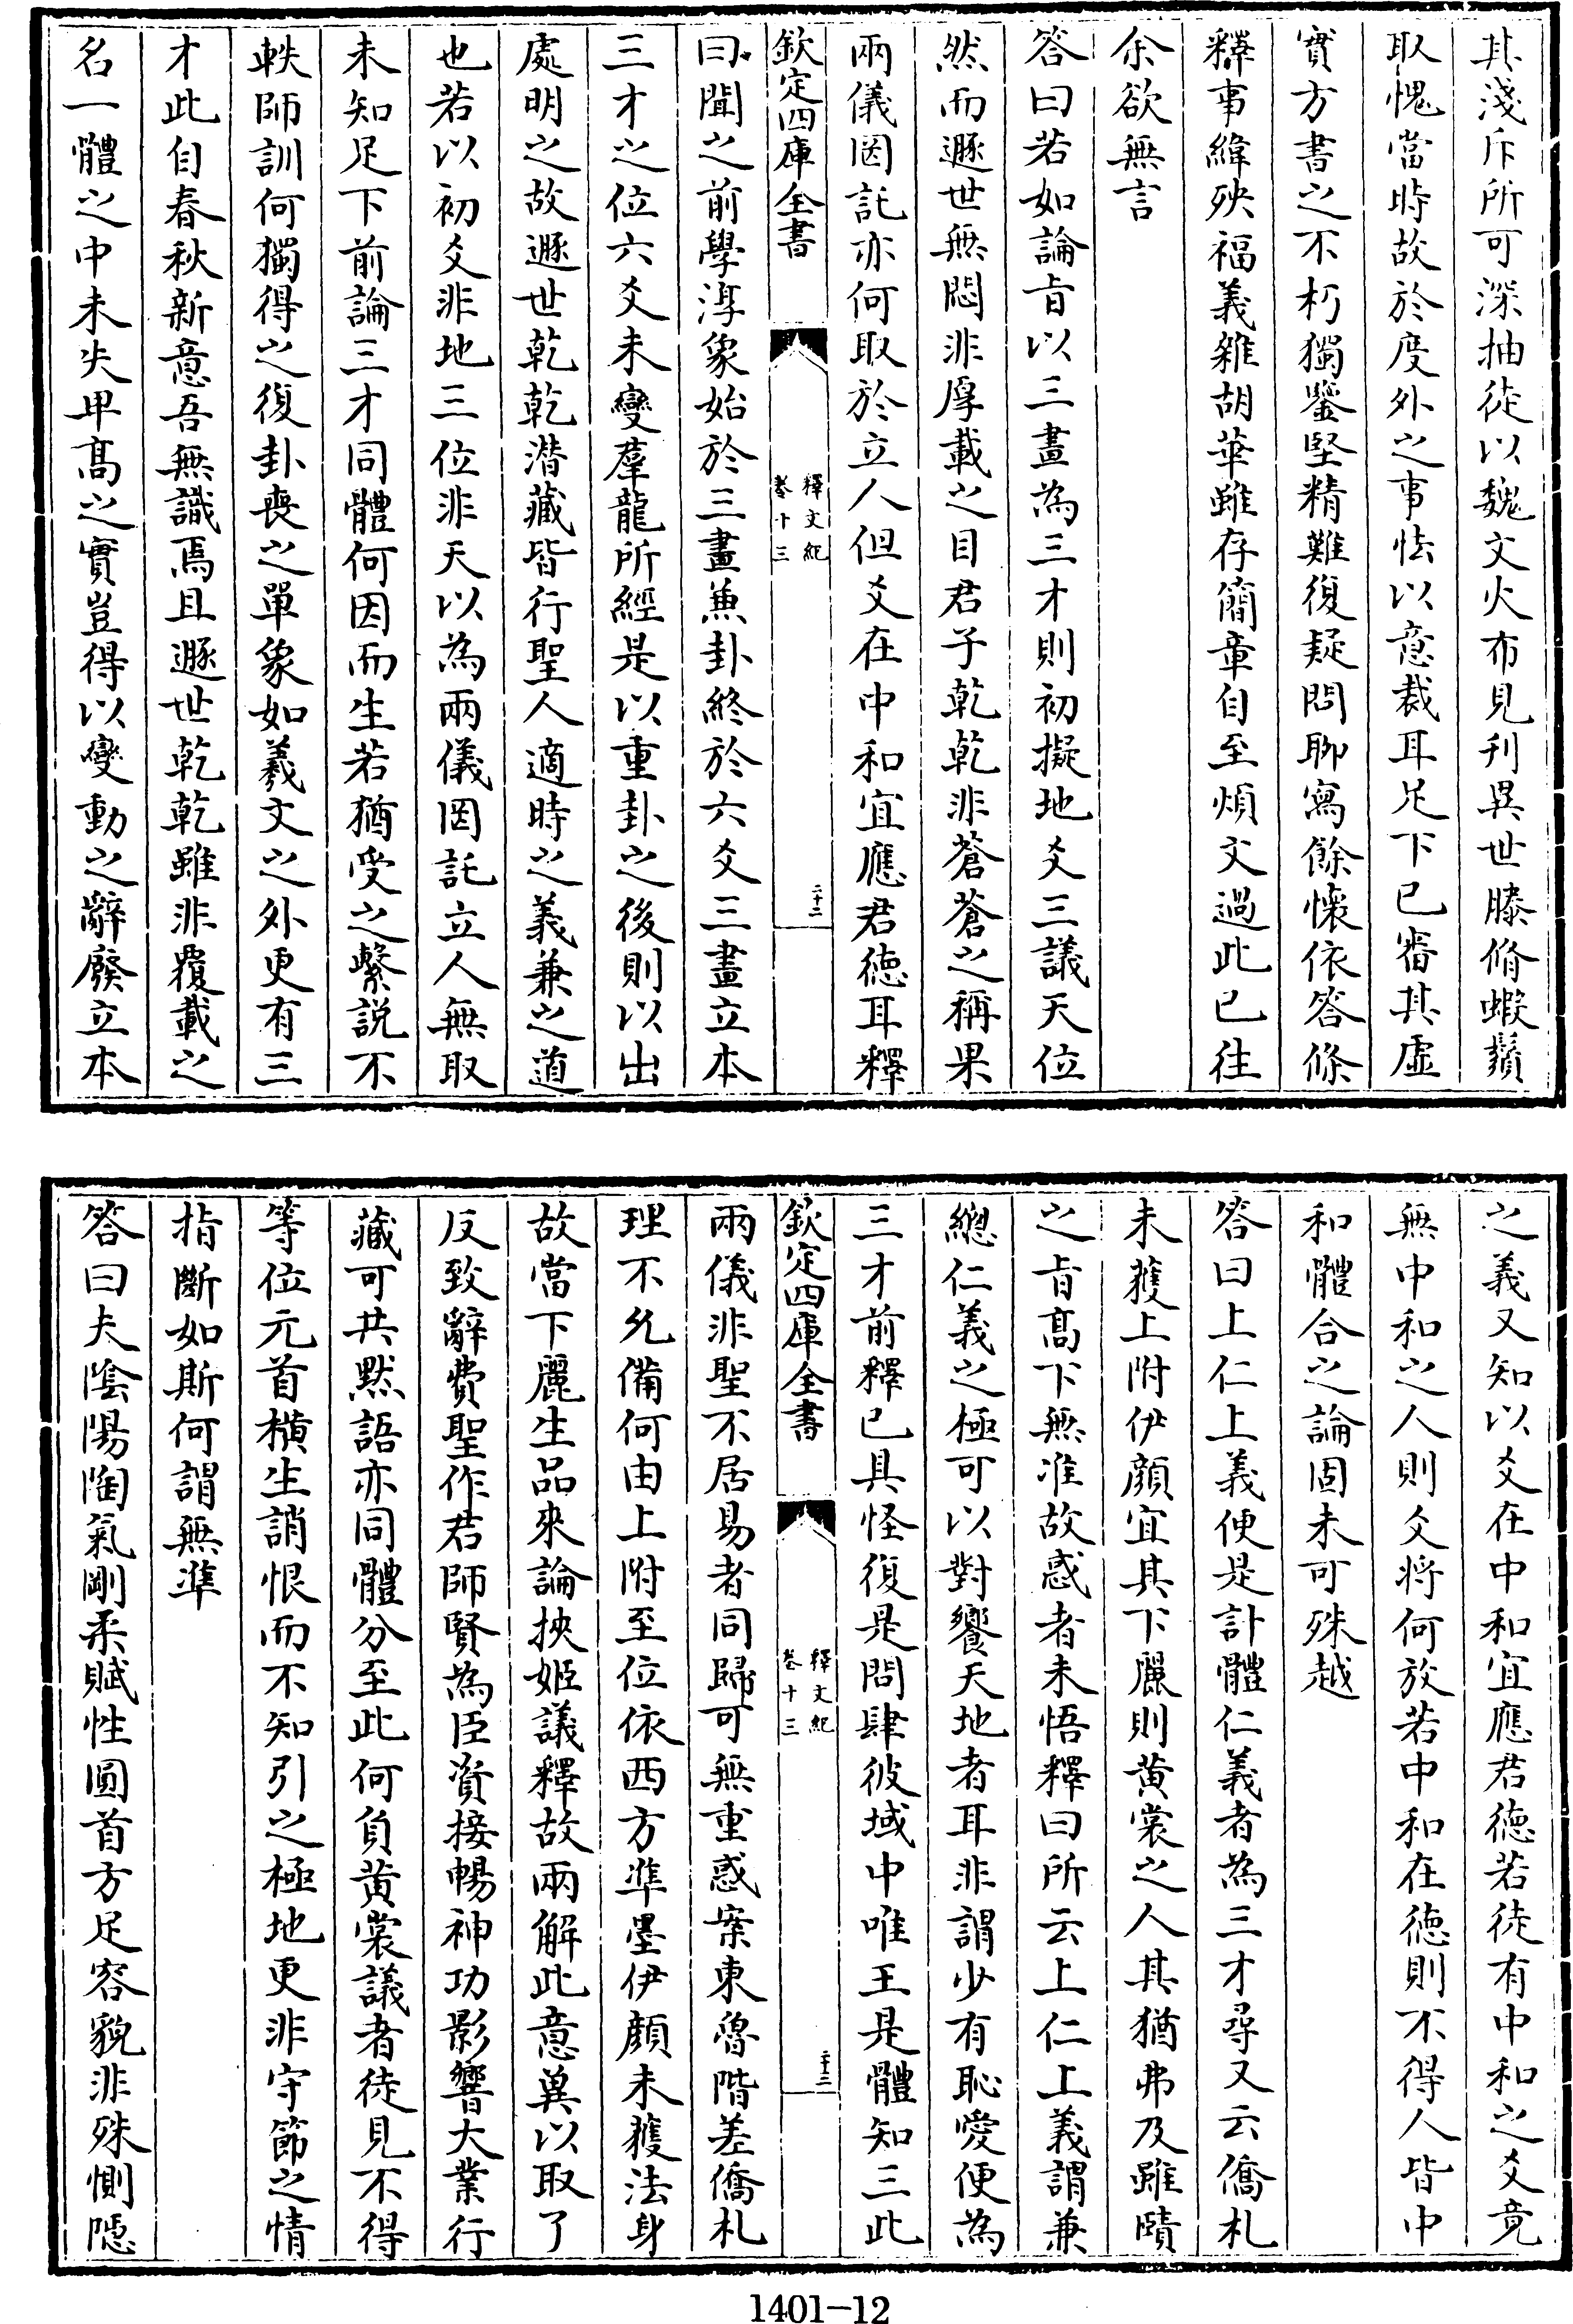 其淺斥所可深抽徒以魏文火布見刋異世滕脩蝦鬚
取愧當時故於度外之事怯以意裁耳足下已審其虛
實方書之不朽獨鑒堅精難復疑問聊寫餘懷依答條
釋事緯殃福義雜胡華雖存簡章自至煩文過此已往
余欲無言
答曰若如論㫖以三畫為三才則初擬地爻三議天位
然而遯世無悶非厚載之目君子乾乾非蒼蒼之稱果
兩儀罔託亦何取於立人但爻在中和宜應君徳耳釋
欽定四庫全書
釋文紀
卷十三
二十二
曰聞之前學淳象始於三畫兼卦終於六爻三畫立本
三才之位六爻未變羣龍所經是以重卦之後則以出
處明之故遯世乾乾潜藏皆行聖人適時之義兼之道
也若以初爻非地三位非天以為兩儀罔託立人無取
未知足下前論三才同體何因而生若猶受之繫説不
軼師訓何獨得之復卦喪之單象如羲文之外更有三
才此自春秋新意吾無識焉且遯世乾乾雖非覆載之
名一體之中未失卑髙之實豈得以變動之辭廢立本
之義又知以爻在中和宜應君徳若徒有中和之爻竟
無中和之人則爻將何放若中和在徳則不得人皆中
和體合之論固未可殊越
答曰上仁上義便是計體仁義者為三才尋又云僑札
未獲上附伊顔宜其下麗則黄裳之人其猶弗及雖賾
之㫖髙下無准故惑者未悟釋曰所云上仁上義謂兼
總仁義之極可以對饗天地者耳非謂少有恥愛便為
三才前釋已具怪復是問肆彼域中唯王是體知三此
欽定四庫全書
釋文紀
卷十三
二十三
兩儀非聖不居易者同歸可無重惑案東魯階差僑札
理不允備何由上附至位依西方準墨伊顔未獲法身
故當下麗生品來論挾姬議釋故兩解此意冀以取了
反致辭費聖作君師賢為臣資接暢神功影響大業行
藏可共黙語亦同體分至此何負黄裳議者徒見不得
等位元首横生誚恨而不知引之極地更非守節之情
指斷如斯何謂無準
答曰夫隂陽陶氣剛柔賦性圓首方足容貌非殊惻隠
1401—12